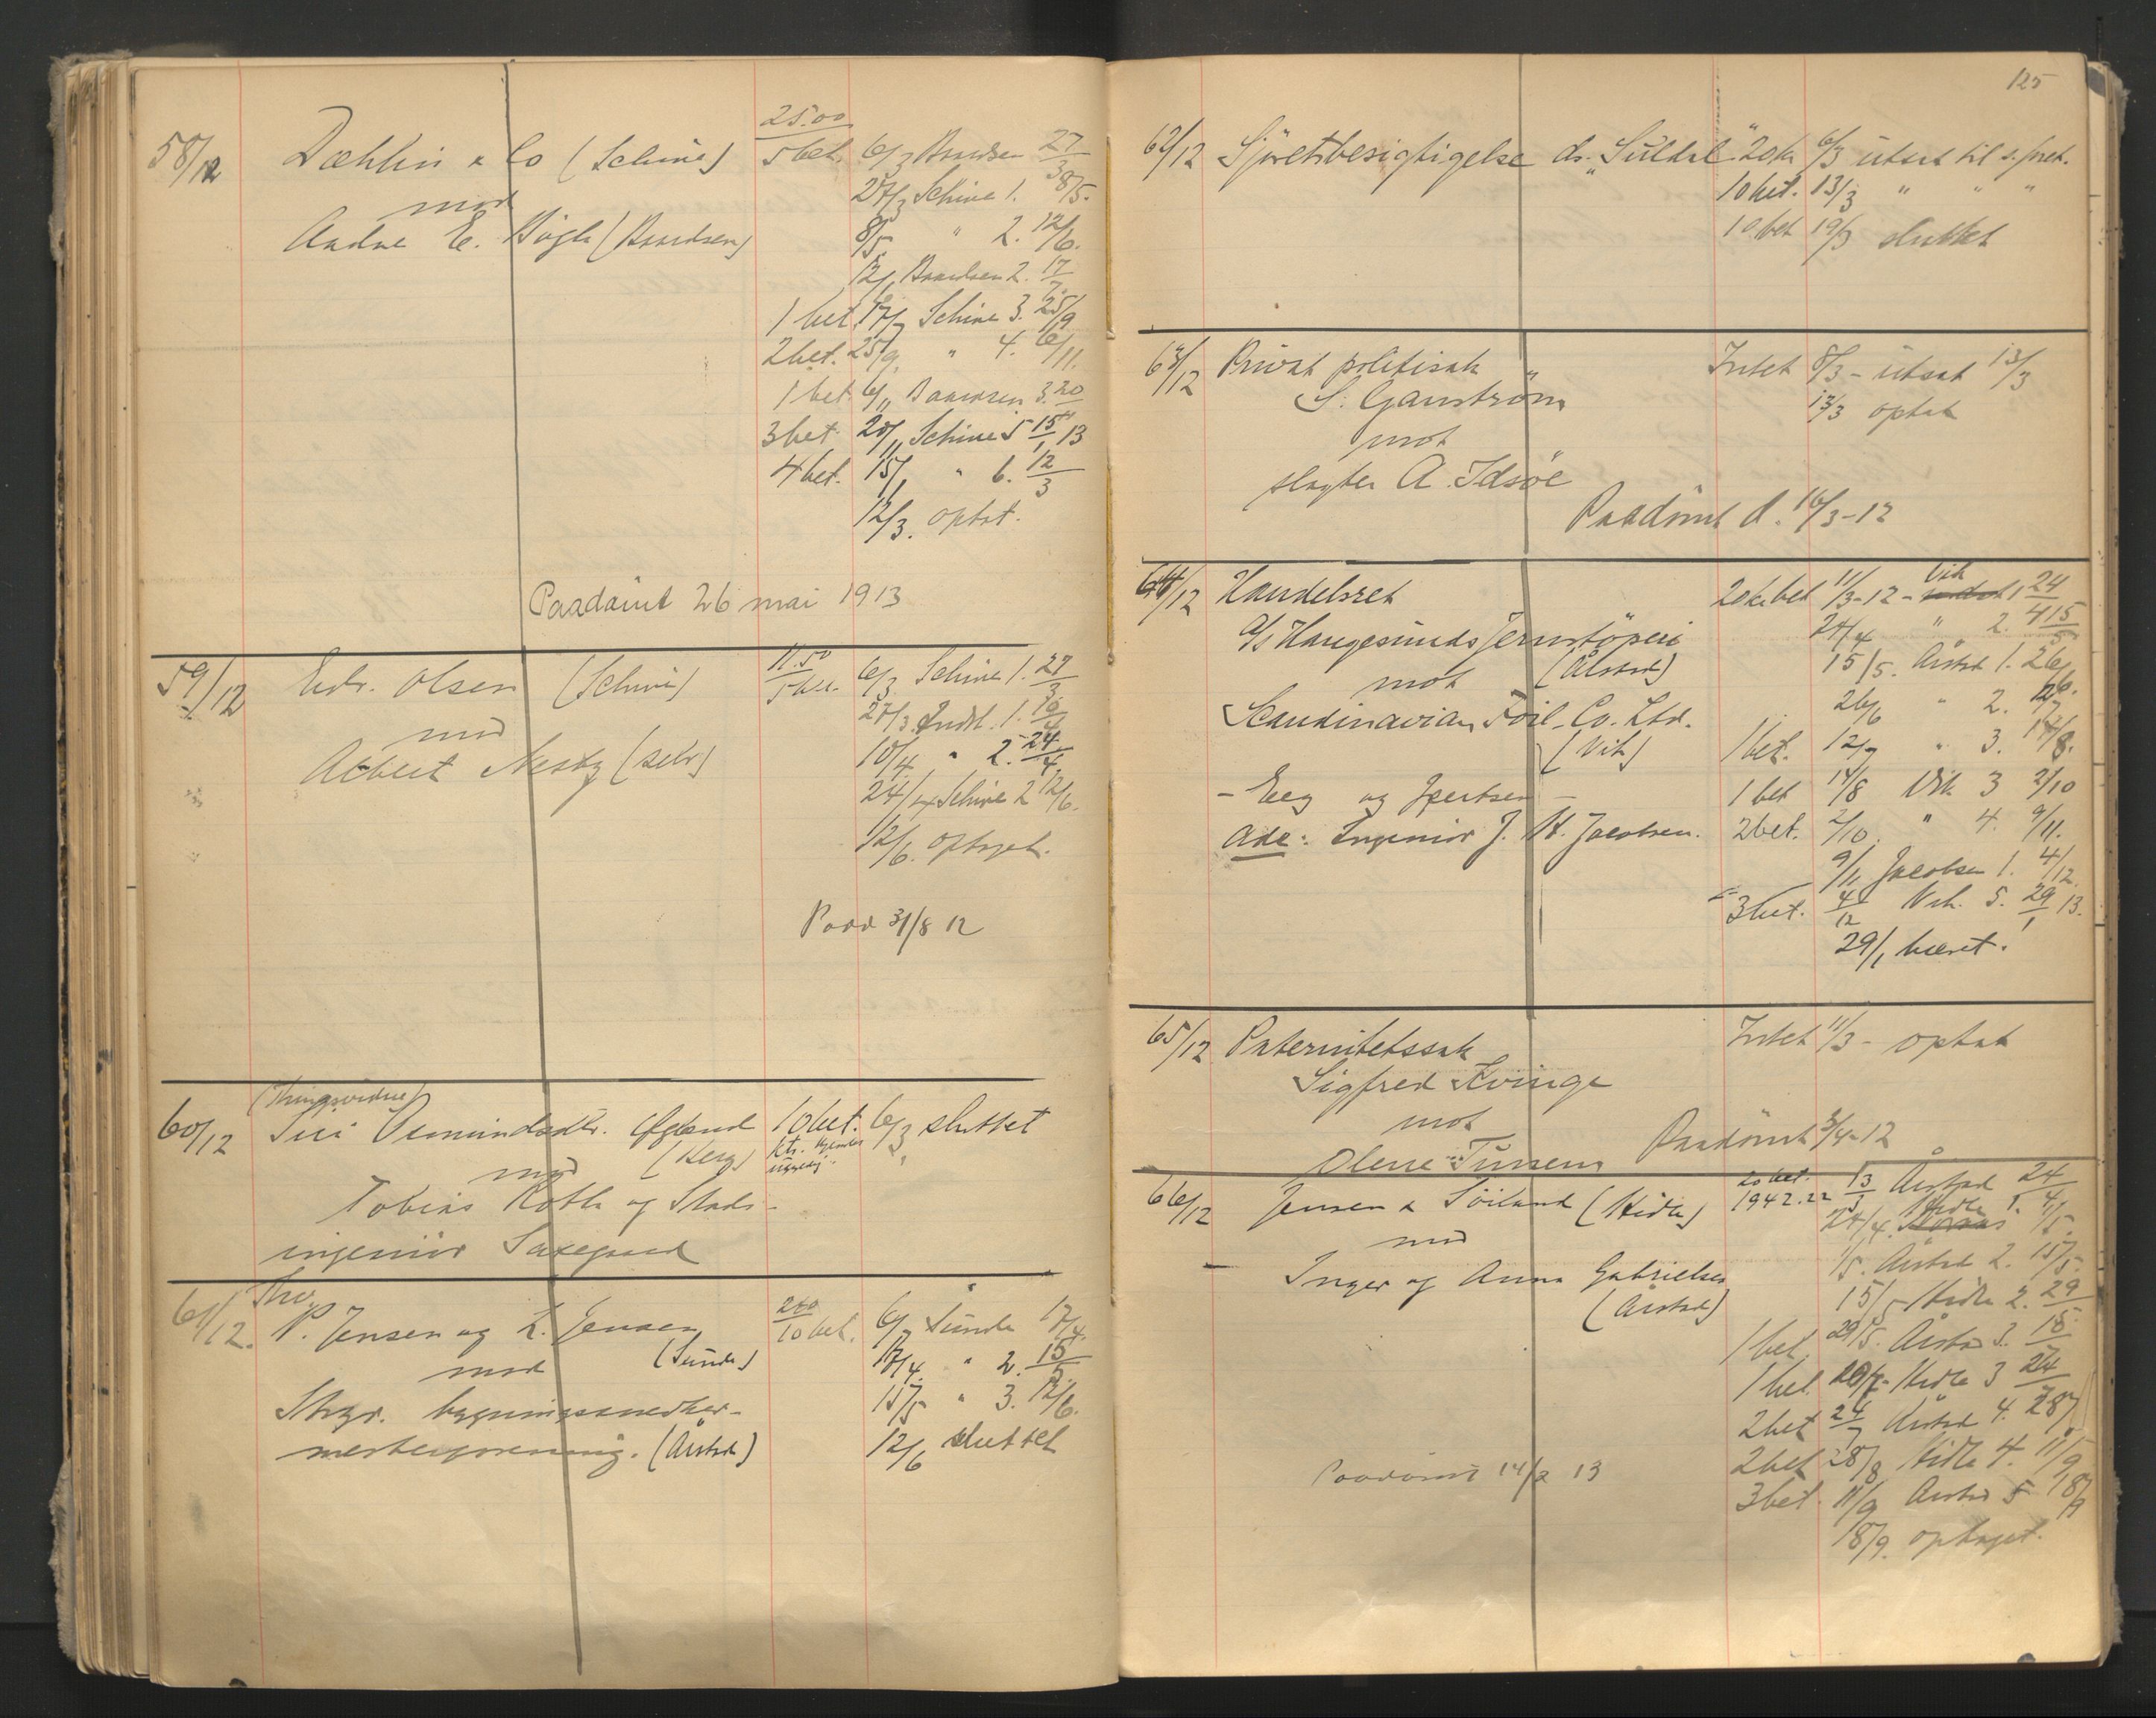 25.00
58/12 Dæhlin & Co (Schive) 5 bet. 6/3 Baardsen 27/3
mod 27/3 Schive 1. 8/5.
Andne E. Høgh (Baardsen) 8/5 " 2. 12/6.
12/6 Baardsen 2. 17/7
1 bet 17/7 Schive 3. 25/9
2 bet. 25/9. " 4. 6/11.
1 bet 6/11 Baardsen 3. 20
3 bet. 20/11 Schive 5 15/1 13
4 bet. 15/1 " 6. 12/3
12/3. optat.
Paadömt 26 mai 1913
59/12 Edv. Olsen (Schive) 11.50 5 bet. 6/3 Schive 1. 27/3
mod 27/3. Indst. 1. 10/4
Albert Nesby (selv) 10/4. " 2. 24/4.
24/4 Schive 2 12/6.
12/6. optaget.
Paad 31/8 12
(Thingsvidne)
60/12 Siri Osmundsdtr. Øgland 10 bet. 6/3 sluttet
mod (Berg)
Tobias Roth og Stads-
ingeniør Saxegaard
61/12. Thv.
P. Jensen og L. Jensen 10 bet. 6/3 Sunde 17/4.
mod (Sunde) 17/4. " 2. 15/5.
Stvgr. bygningssnedker- 15/5 " 3. 12/6.
mesterforening. (Årstad) 12/6 sluttet
125
62/12 Sjöretsbesigtigelse ds. "Suldal" 20 kr 6/3 utsat til s. foret.
10 bet. 13/3 " " "
10 bet 19/3 sluttet
63/12 Privat politisak Intet 8/3 - utsat 13/3
S. Ganström 13/3 optat
mot
slagter A. Idsöe
Paadömt d. 16/3-12
64/12 Handelsret 20 kr. bet 11/3-12 - Vik 1 24/4
A/S Haugesunds Jernstöperi 24/4 " 2. 15/5
(Ålstad) 15/5. Årstad 1. 26/6.
mot
Scandinavian Foil Co. Ltd. 26/6 " 2. 12/7
(Vik) 1 bet. 12/7 " 3. 14/8.
- Eeg og Gjertsen - 1 bet 14/8 Vik 3 2/10
Adc: Ingeniör J. H. Jacobsen. 2 bet. 2/10. " 4. 9/11.
9/11 Jacobsen 1. 4/12.
3 bet. 4/12 Vik. 5. 29/1 13.
29/1 hævet.
65/12 Paternitetssak Intet 11/3 - optat
Sigfred Kvinge
mot
Olene Tunsem Paadömt 3/4-12
66/12 Jensen & Söiland (Hidle) 20 bet. 1942.22 13/3 Årstad 24/4
mod 24/4. Hidle 1. 1/5.
Inger og Anna Gabrielsen 1/5. Årstad 2. 15/5.
(Årstad) 15/5 Hidle 2. 29/5
1 bet. 29/5. Årstad 3. 18.
1 bet. Hidle 3 24/7
2 bet 24/7 Årstad 4. 28/8
2 bet 28/8 Hidle 4. 11/9
3 bet. 11/9 Årstad 5 18/9
18/9. optaget.
Paadömt 14/2 13